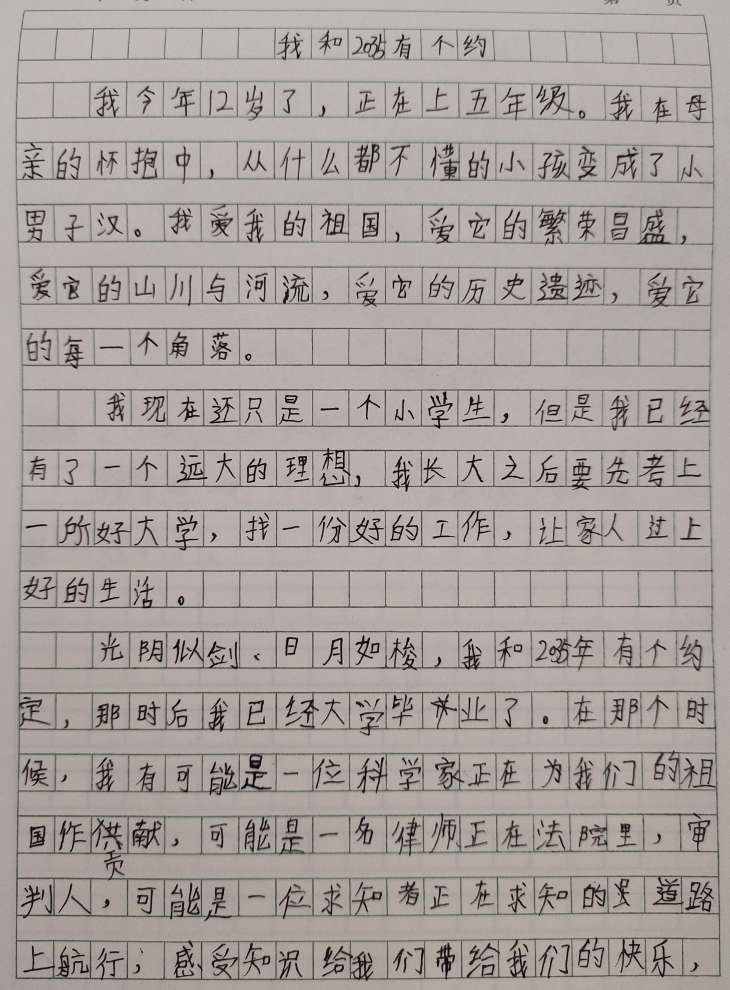 我和2035有个约
我今年12岁了，正在上五年级。我在母
亲的怀抱中，从什么都不懂的小孩变成了小
男子汉。我爱我的祖国，爱它的繁荣昌盛，
爱它的山川与河流，爱它的历史遗迹，爱它
的每一个角落。
我现在还只是一个小学生，但是我已经
有了一个远大的理想，我长大之后要先考上
一所好大学，找一份好的工作，让家人过上
好的生活。
光阴似剑、日月如梭，我和2035年有个约
定，那时后我已经大学毕业了。在那个时
候，我有可能是一位科学家正在为我们的祖
国作供献，可能是一名律师正在法院里，审
贡
判人，可能是一位求知者正在求知的道路
上航行；感受知识给我们带给我们的快乐，